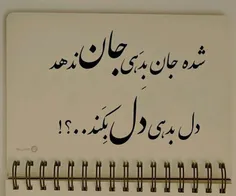 شده جان بدَهی جان ندهد
دل بدهی دِل بِکَند..؟!